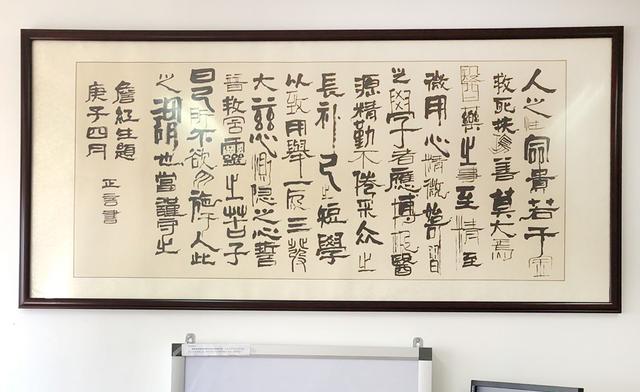 人之性命貴若千金
救死扶傷善莫大焉
醫藥之事至精至
微用心精微始
之學者應博極醫
源精勤不倦采众之
長补己之短學
以致用舉一反三發
大慈心惻隱之心誓
普救含靈之苦子
曰己所不欲勿施于人此
之世當謹守之
詹紅生題
庚子四月 正言書